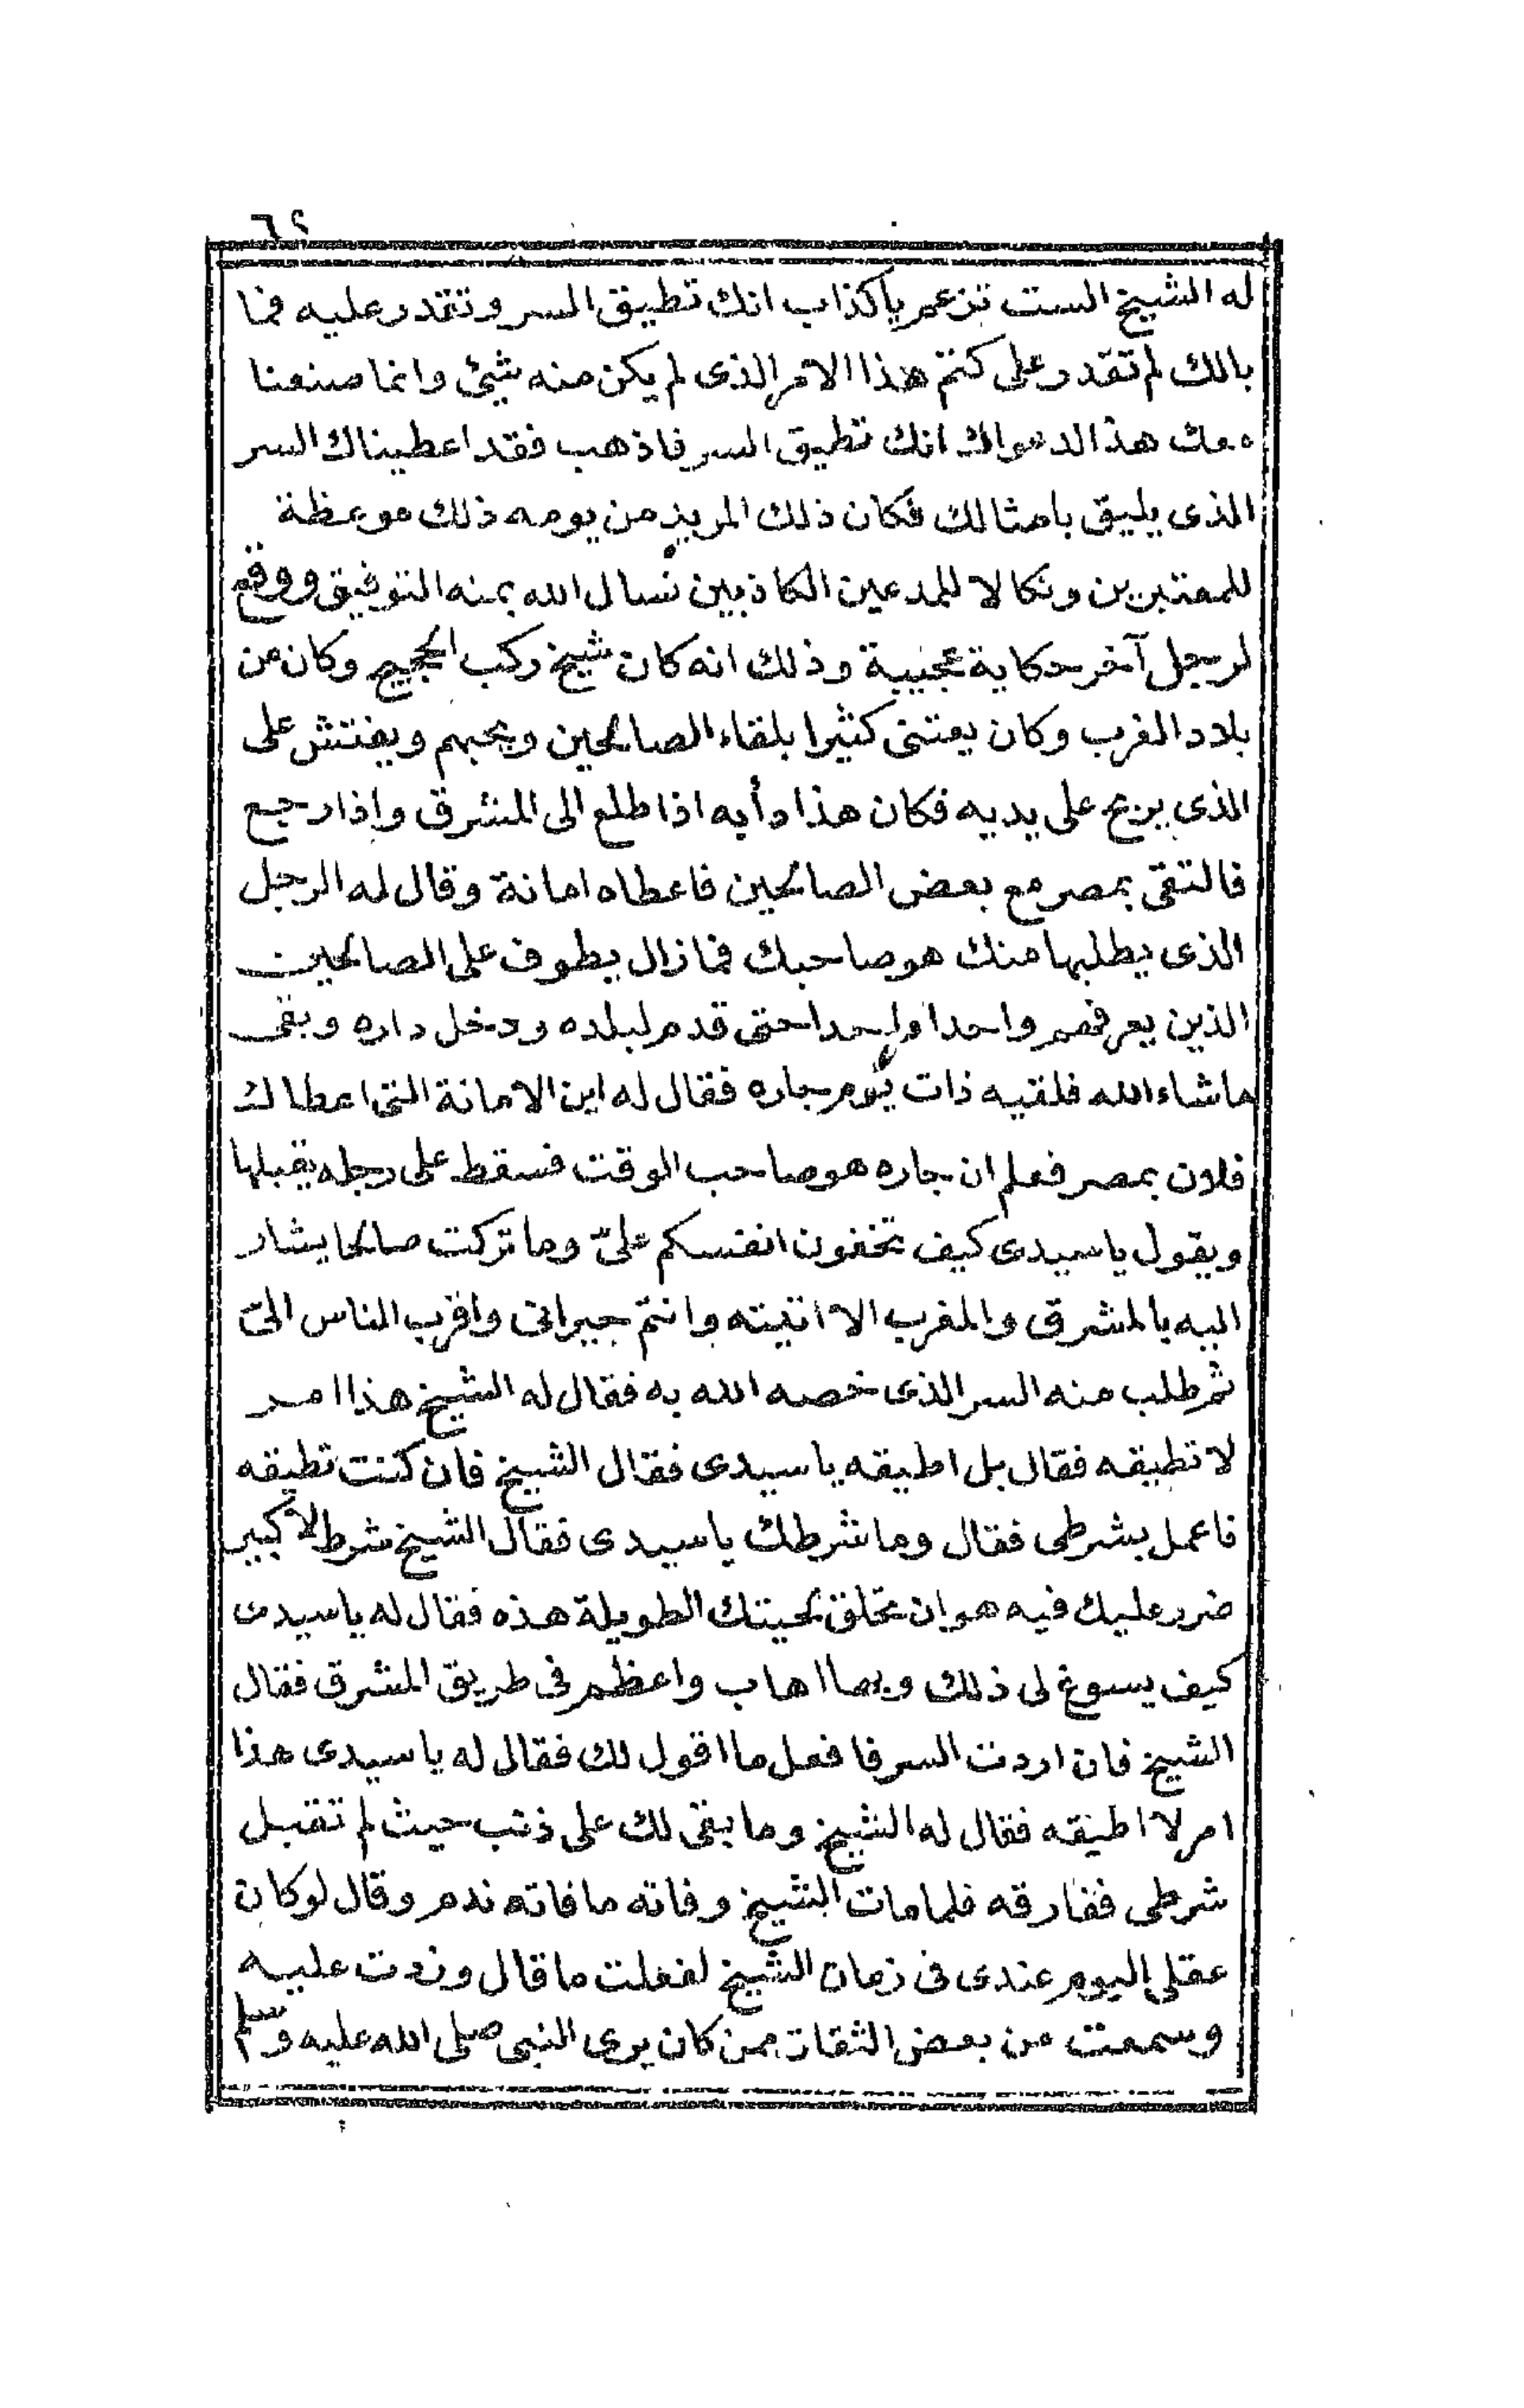 ٦٢
له الشيخ الست تزعم ياكذاب انك تطيق السر وتقدر عليه فما
بالك لم تقدر على كتم هذا الامر الذى لم يكن منه شيئ وانما صنعنا
معك هذا لدعواك انك تطيق السر فاذهب فقد اعطيناك السر
الذى يليق بامثالك فكان ذلك المريد من يومه ذلك موعظة
للمعتبرين ونكالا للمدعين الكاذبين نسال الله بمنه التوفيق ووقع
لرجل آخر حكاية عجيبة وذلك انه كان شيخ ركب الحجيج وكان من
بلاد المغرب وكان يعتنى كثيرا بلقاء الصالحين ويحبهم ويفتش على
الذى يربح على يديه فكان هذا دأبه اذا طلع الى المشرق واذا رجع
فالتقى بمصر مع بعض الصالحين فاعطاه امانة وقال له الرجل
الذى يطلبها منك هو صاحبك فما زال يطوف على الصالحين
الذين يعرفهم واحدا واحدا حتى قدم لبلده ودخل داره وبقى
ماشاء الله فلقيه ذات يوم جاره فقال له اين الامانة التى اعطاك
فلان بمصر فعلم ان جاره هو صاحب الوقت فسقط على رجله يقبلها
ويقول ياسيدى كيف تخفون انفسكم علىّ وما تركت صالحا يشار
اليه بالمشرق والمغرب الا اتيته وانتم جيرانى واقرب الناس الىّ
ثم طلب منه السر الذى خصه الله به فقال له الشيخ هذا امر
لا تطيقه فقال بل اطيقه ياسيدى فقال الشيخ فان كنت تطيقه
فاعمل بشرطى فقال وما شرطك ياسيدى فقال الشيخ شرط لا كبير
ضرر عليك فيه هو ان تحلق لحيتك الطويلة هذه فقال له ياسيدى
كيف يسوغ لى ذلك وبها اهاب واعظم فى طريق المشرق فقال
الشيخ فان اردت السر فافعل ما اقول لك فقال له ياسيدى هذا
امر لا اطيقه فقال له الشيخ وما بقى لك على ذنب حيث لم تقبل
شرطى ففارقه فلما مات الشيخ وفاته ما فاته ندم وقال لو كان
عقلى اليوم عندى فى زمان الشيخ لفعلت ما قال وزدت عليه
وسمعت من بعض الثقات ممن كان يرى النبى صلى الله عليه وسلم